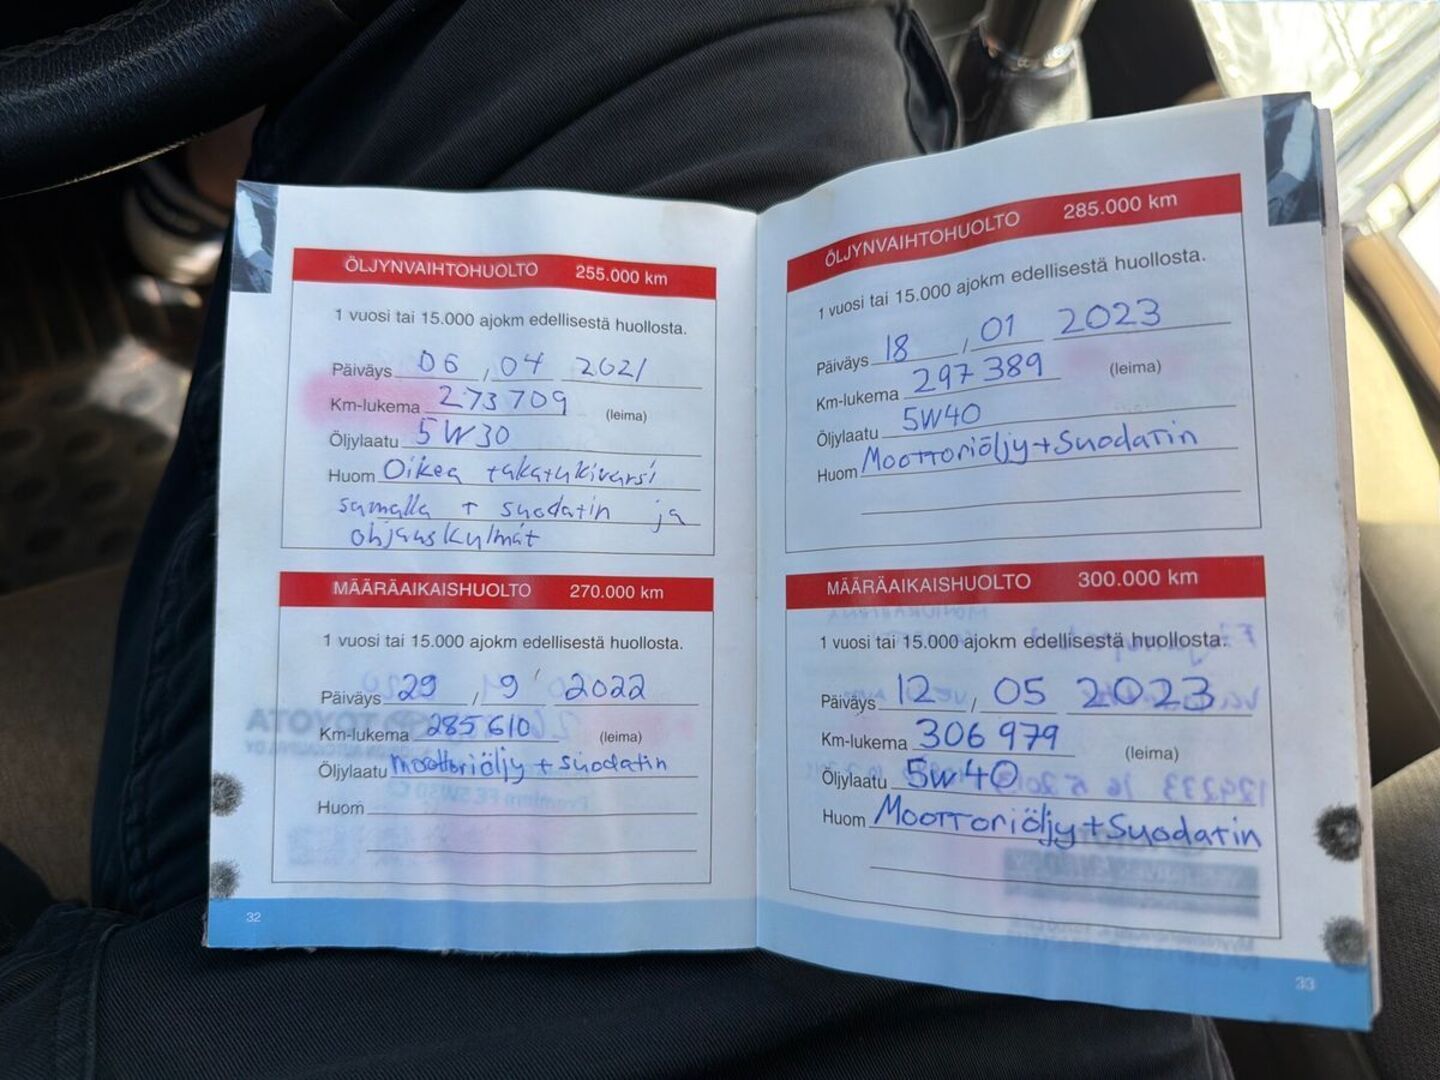 ÖLJYNVAIHTOHUOLTO 255.000 km
1 vuosi tai 15.000 ajokm edellisestä huollosta.
Päiväys 06 , 04 2021
Km-lukema 273 709 (leima)
Öljylaatu 5W30
Huom Oikea takatukivarsi
samalla + suodatin ja
ohjauskulmat
MÄÄRÄAIKAISHUOLTO 270.000 km
1 vuosi tai 15.000 ajokm edellisestä huollosta.
Päiväys 29 / 9 2022
Km-lukema 285 610 (leima)
Öljylaatu moottoriöljy + suodatin
Huom
32
ÖLJYNVAIHTOHUOLTO 285.000 km
1 vuosi tai 15.000 ajokm edellisestä huollosta.
Päiväys 18 , 01 2023
Km-lukema 297 389 (leima)
Öljylaatu 5W40
Huom Moottoriöljy + Suodatin
MÄÄRÄAIKAISHUOLTO 300.000 km
1 vuosi tai 15.000 ajokm edellisestä huollosta.
Päiväys 12 / 05 2023
Km-lukema 306 979 (leima)
Öljylaatu 5W40
Huom Moottoriöljy + Suodatin
33